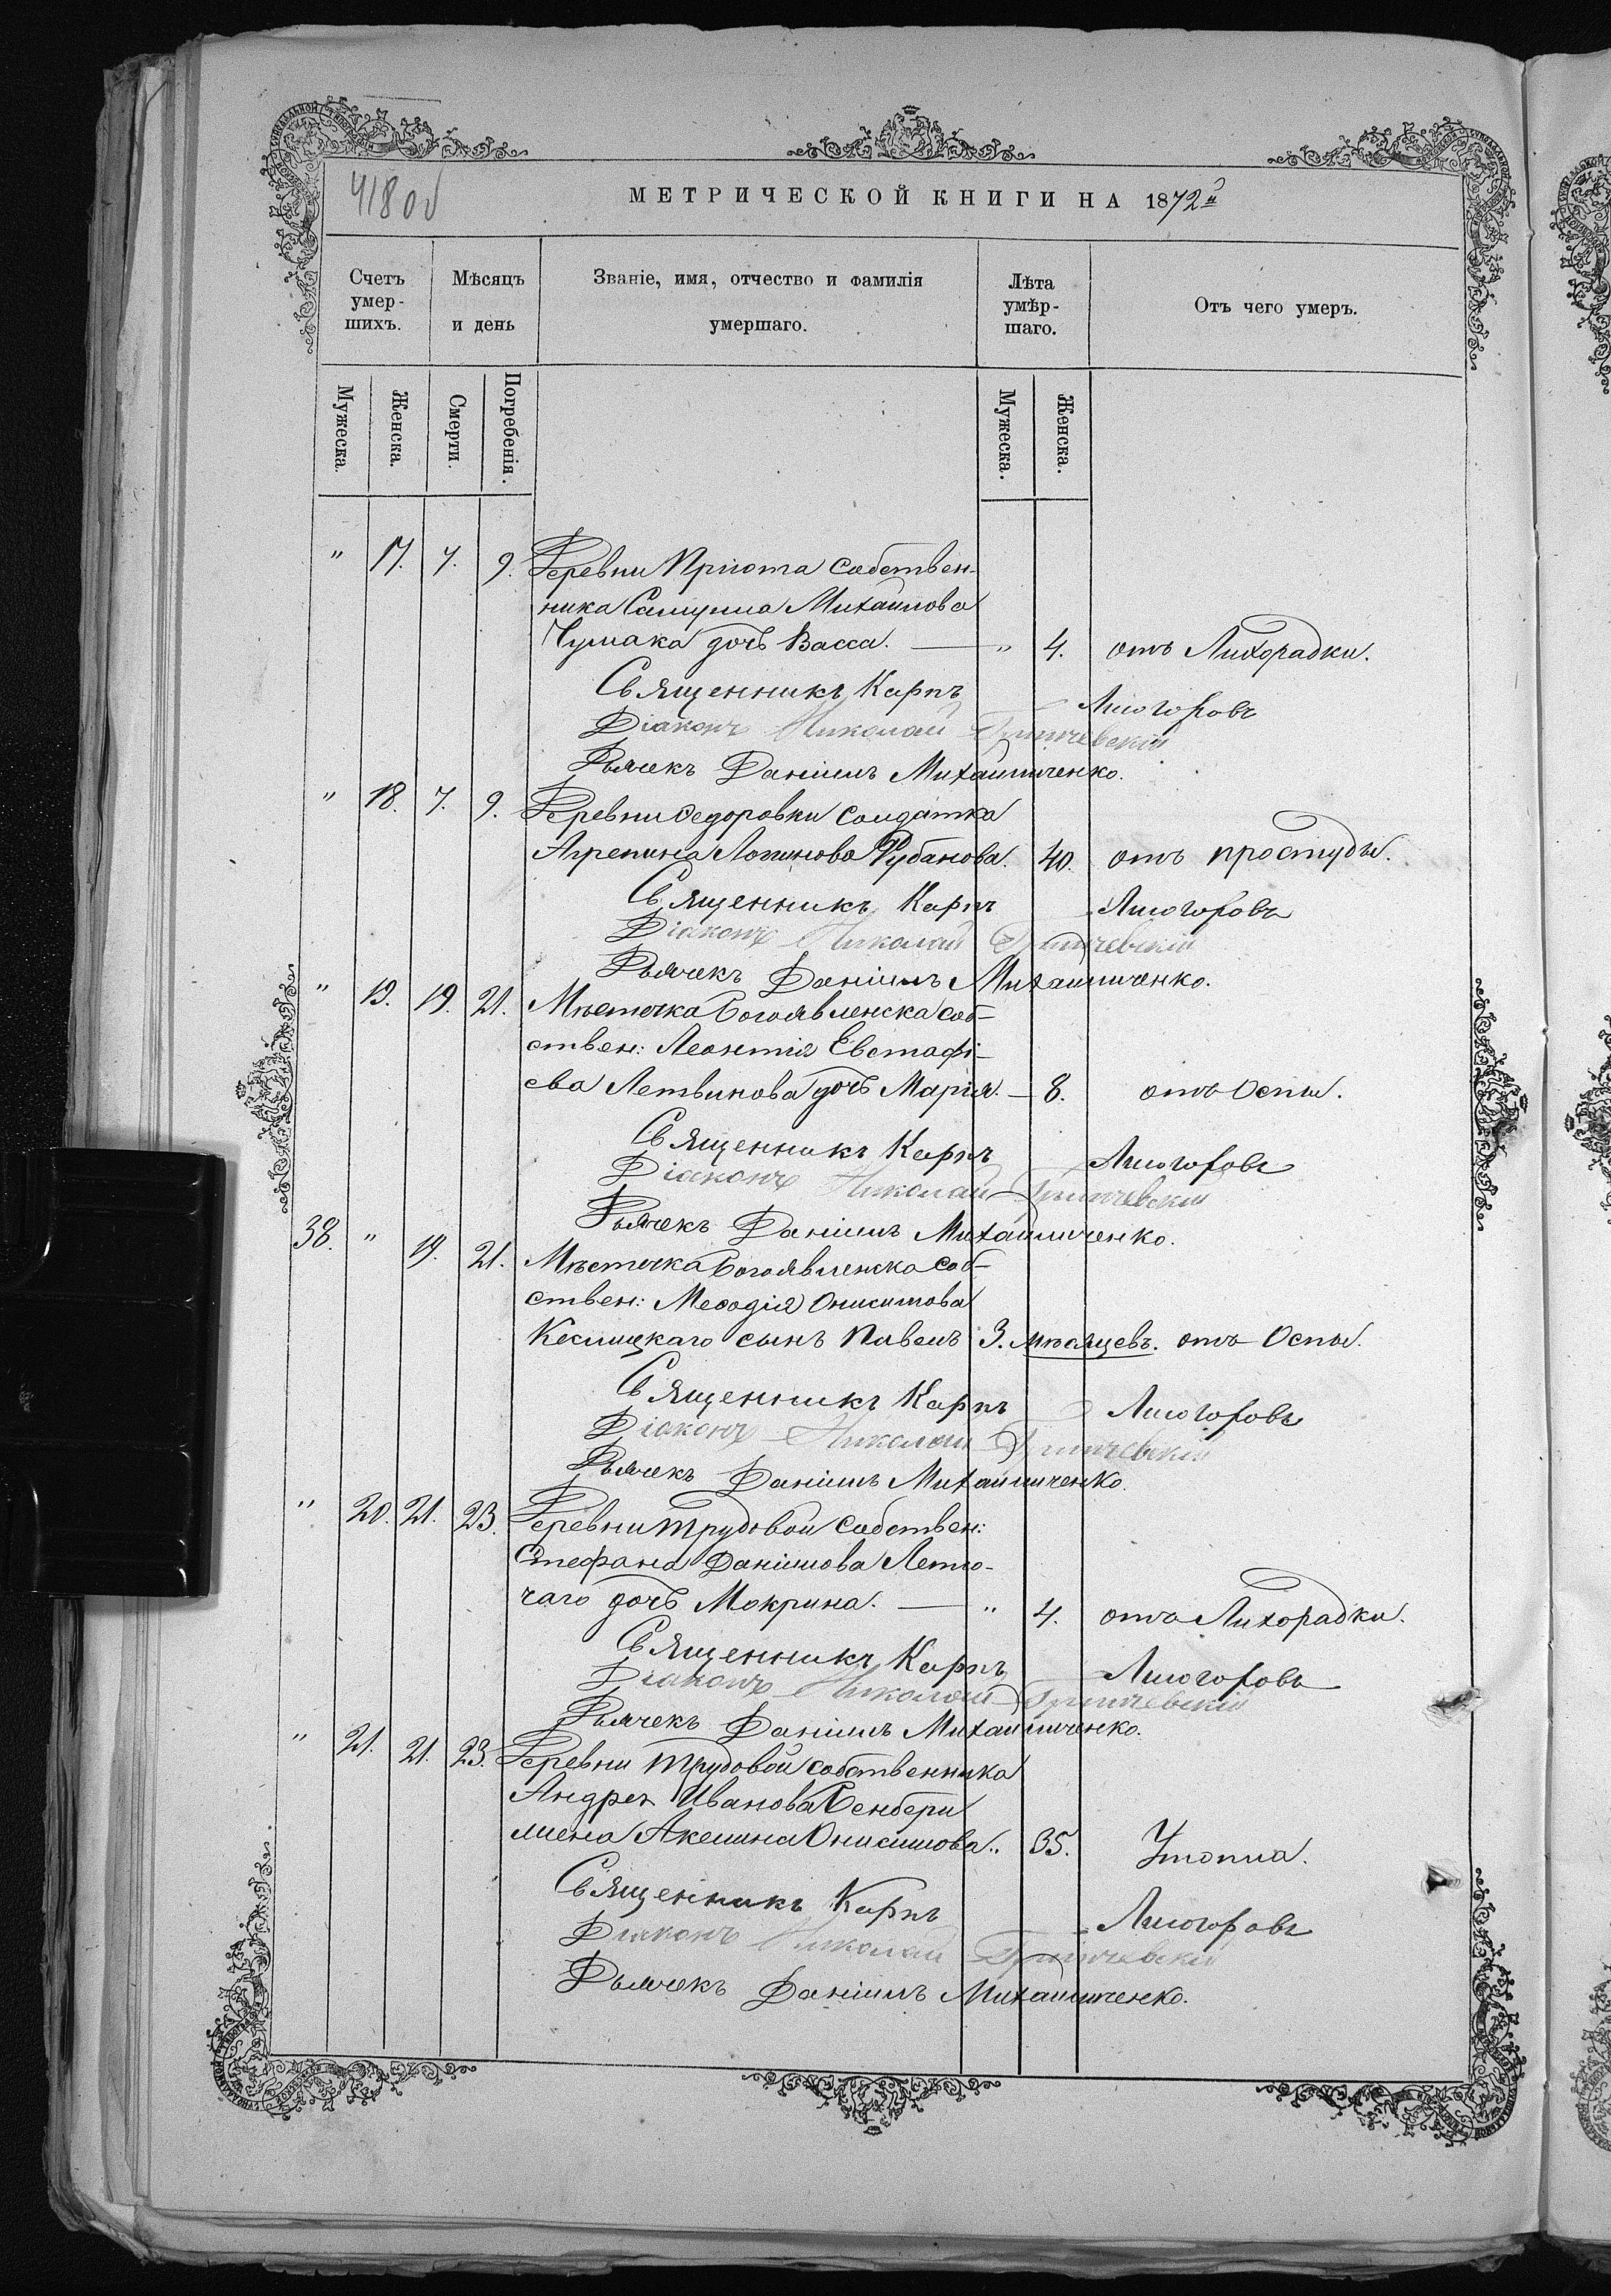 418об
МЕТРИЧЕСКОЙ КНИГИ НА 1872й
Счетъ умер-шихъ.
Мѣсяцъ и день
Званіе, имя, отчество и фамилія умершаго.
Лѣта умѣр-шаго.
Отъ чего умеръ.
Мужеска.
Женска.
Смерти.
Погребенія.
Мужеска.
Женска.
" 17. 7. 9. Деревни Пріюта собствен-
ника Самуила Михаилова
Чумака дочь Васса. — " 4. отъ Лихорадки.
Священникъ Карпъ Лисогоровъ
Діаконъ Николай
Дьячекъ Даніилъ Михайличенко.
" 18. 7. 9. Деревни Ѳедоровки солдатка
Агрепина Логинова Рубанова. 40. отъ простуды.
Священникъ Карпъ Лисогоровъ
Діаконъ Николай
Дьячекъ Даніилъ Михайличенко.
" 19. 19. 21. Мѣстечка Богоявленска соб-
ствен: Леонтія Евстафі-
ева Летвинова дочь Марія. — 8. отъ Оспы.
Священникъ Карпъ Лисогоровъ
Діаконъ Николай
Дьячекъ Даніилъ Михайличенко.
38. " 19. 21. Мѣстечка Богоявленска соб-
ствен: Меѳодія Онисимова
Кеслицкаго сынъ Павелъ 3. мѣсяцевъ. отъ Оспы.
Священникъ Карпъ Лисогоровъ
Діаконъ Николай
Дьячекъ Даніилъ Михайличенко.
" 20. 21. 23. Деревни Трудовой собствен:
Стефана Даніилова Летю-
чаго дочь Мокрина. — " 4. отъ Лихорадки.
Священникъ Карпъ Лисогоровъ
Діаконъ Николай
Дьячекъ Даніилъ Михайличенко.
" 21. 21. 23. Деревни Трудовой собственника
Андрея Иванова Бенбери
жена Акелина Онисимова. " 35. Утопла.
Священникъ Карпъ Лисогоровъ
Діаконъ Николай
Дьячекъ Даніилъ Михайличенко.